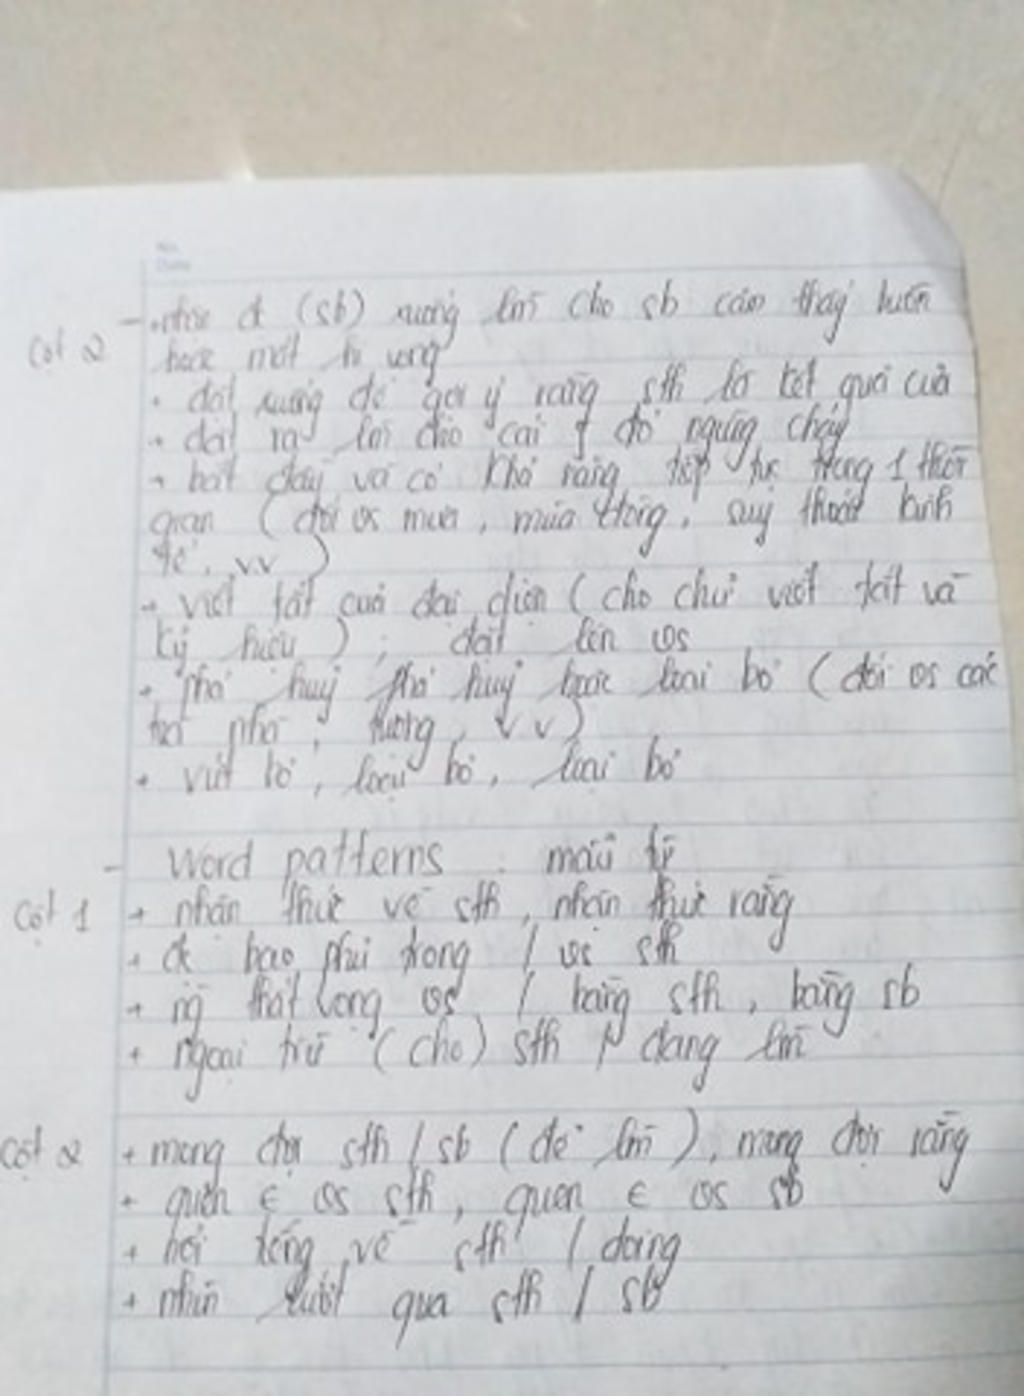 Cột 2 - + nhìn đi (sb) xuống làm cho sb cảm thấy buồn
hoặc mất hi vọng
+ đặt xuống để gợi ý rằng sth là kết quả của
+ dặt ra làm cho cái j đó ngừng cháy
+ bắt đầy và có khả năng tiếp tục trong 1 thời
gian (đối vs mưa, mùa đông, suy thoái kinh
tế, v.v)
+ viết tắt của đại diện (cho chữ viết tắt và
ký hiệu); đặt lên vs
+ phá huỷ phá huỷ hoặc loại bỏ (đối vs các
toà nhà, tường, v v)
+ vứt bỏ, loại bỏ, loại bỏ
- Word patterns : mẫu từ
Cột 1 + nhận thức về sth, nhận thức rằng
+ đc bao phủi trong / vs sth
+ ng thất vọng vs / bằng sth, bằng sb
+ ngoại trừ (cho) sth / đang làm
Cột 2 + mong đợi sth / sb (để làm), mong đợi rằng
+ quen € vs sth, quen € vs sb
+ nổi tiếng về sth / doing
+ nhìn lướt qua sth / sb